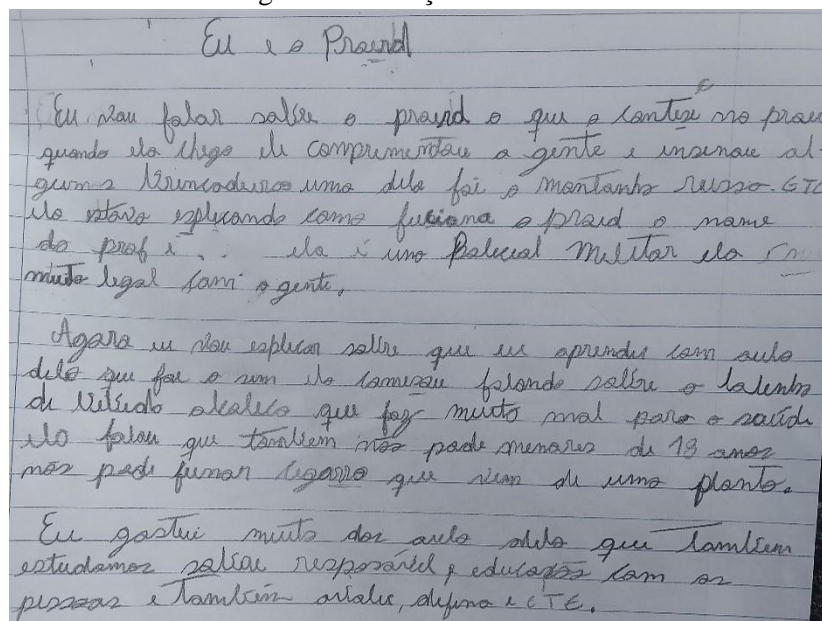 Eu e o Proerd
Eu vou falar sobre o proerd o que a contese no proe
quando ela chego ele comprimentou a gente e insinou al-
guma brincadeiras uma dela foi a montanha russa. ETC
ela estava esplicando como fuciona o proerd o name
do prof é . . ela é uma Policial Melitar ela
muito legal com a gente.
Agora eu vou esplicar sobre que eu aprendi com aula
dela que foi o ela comesou falando sobre o
de bebida alcolica que faz muito mal para a saúde
ela falou que tambem não pode menores de 18 anos
não pode fumar cigarro que vem de uma planta.
Eu gostei muito das aula dela que tambem
estudamos sobre resposável, educação com as
pessoas e também e CTE.